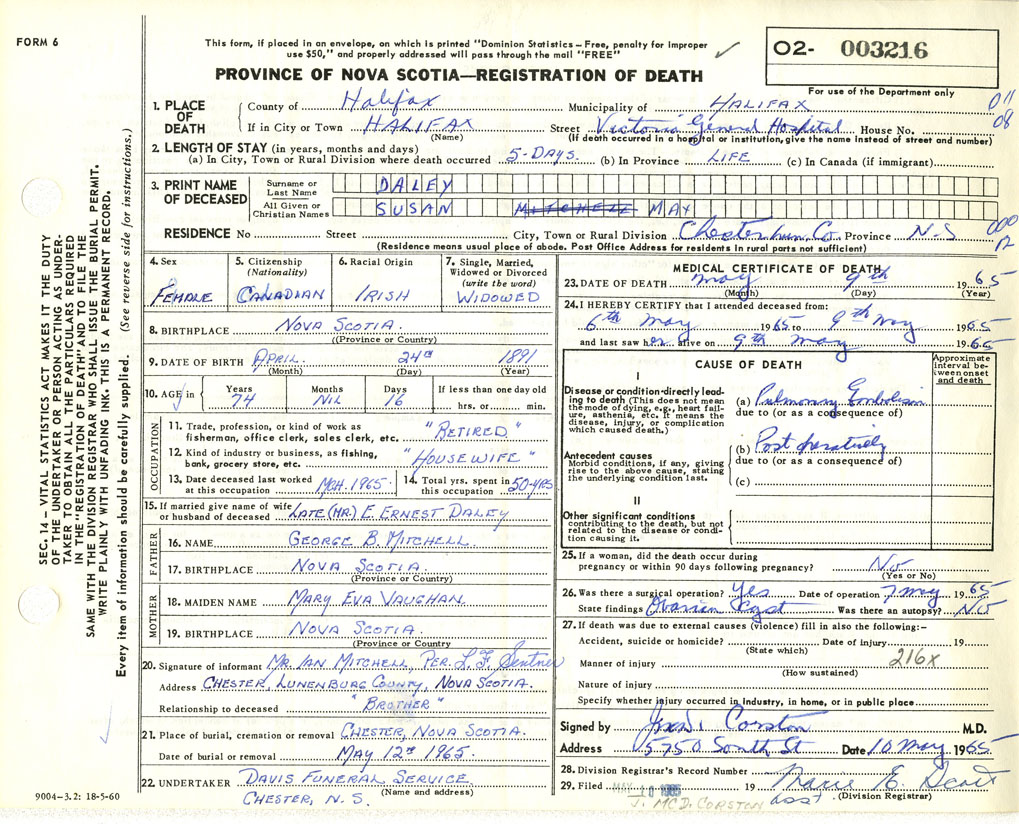 FORM 6
This form, if placed in an envelope, on which is printed "Dominion Statistics – Free, penalty for improper
use $50," and properly addressed will pass through the mail "FREE"
O2- 003216
For use of the Department only
PROVINCE OF NOVA SCOTIA—REGISTRATION OF DEATH
SEC. 14 – VITAL STATISTICS ACT MAKES IT THE DUTY
OF THE UNDERTAKER OR PERSON ACTING AS UNDER-
TAKER TO OBTAIN ALL THE PARTICULARS REQUIRED
IN THE "REGISTRATION OF DEATH" AND TO FILE THE
SAME WITH THE DIVISION REGISTRAR WHO SHALL ISSUE THE BURIAL PERMIT.
WRITE PLAINLY WITH UNFADING INK. THIS IS A PERMANENT RECORD.
Every item of information should be carefully supplied. (See reverse side for instructions.)
1. PLACE OF DEATH
County of Halifax Municipality of HALIFAX 011
If in City or Town HALIFAX Street Victoria General Hospital House No. 08
(Name) (If death occurred in a hospital or institution, give the name instead of street and number)
2. LENGTH OF STAY (in years, months and days)
(a) In City, Town or Rural Division where death occurred 5-DAYS. (b) In Province LIFE (c) In Canada (if immigrant)
3. PRINT NAME OF DECEASED
Surname or Last Name DALEY
All Given or Christian Names SUSAN MITCHELL MAY
RESIDENCE No Street City, Town or Rural Division Chester Lun. Co Province N-S 000
(Residence means usual place of abode. Post Office Address for residents in rural parts not sufficient) 12
4. Sex FEMALE
5. Citizenship (Nationality) CANADIAN
6. Racial Origin IRISH
7. Single, Married, Widowed or Divorced (write the word) WIDOWED
8. BIRTHPLACE NOVA SCOTIA.
(Province or Country)
9. DATE OF BIRTH APRIL 24th 1891
(Month) (Day) (Year)
10. AGE in Years 74 Months NIL Days 16 If less than one day old hrs. or min.
OCCUPATION
11. Trade, profession, or kind of work as fisherman, office clerk, sales clerk, etc. "RETIRED"
12. Kind of industry or business, as fishing, bank, grocery store, etc. "HOUSEWIFE"
13. Date deceased last worked at this occupation MCH. 1965 14. Total yrs. spent in this occupation 50-YRS
15. If married give name of wife or husband of deceased LATE (MR.) E. ERNEST DALEY
FATHER
16. NAME GEORGE B. MITCHELL.
17. BIRTHPLACE NOVA SCOTIA.
(Province or Country)
MOTHER
18. MAIDEN NAME MARY EVA VAUGHAN.
19. BIRTHPLACE NOVA SCOTIA.
(Province or Country)
20. Signature of informant MR. IAN MITCHELL, PER. L.F. Sentner
Address CHESTER, LUNENBURG COUNTY, NOVA SCOTIA.
Relationship to deceased "BROTHER"
21. Place of burial, cremation or removal CHESTER, NOVA SCOTIA.
Date of burial or removal MAY 12th 1965.
22. UNDERTAKER DAVIS FUNERAL SERVICE
(Name and address)
CHESTER, N. S.
9004–3.2: 18-5-60
MEDICAL CERTIFICATE OF DEATH
23. DATE OF DEATH May 9th 1965
(Month) (Day) (Year)
24. I HEREBY CERTIFY that I attended deceased from:
6th May 1965 to 9th May 1965
and last saw her alive on 9th May 1965
CAUSE OF DEATH
Approximate interval between onset and death
I
Disease or condition directly leading to death (This does not mean the mode of dying, e.g., heart failure, asthenia, etc. It means the disease, injury, or complication which caused death.)
(a) Pulmonary Embolism
due to (or as a consequence of)
Antecedent causes
Morbid conditions, if any, giving rise to the above cause, stating the underlying condition last.
(b) Post operatively
due to (or as a consequence of)
(c)
II
Other significant conditions
contributing to the death, but not related to the disease or condition causing it.
25. If a woman, did the death occur during pregnancy or within 90 days following pregnancy? No
(Yes or No)
26. Was there a surgical operation? Yes Date of operation 7 May 1965
State findings Ovarian Cyst Was there an autopsy? No
27. If death was due to external causes (violence) fill in also the following:–
Accident, suicide or homicide? Date of injury 19
(State which)
Manner of injury 216X
(How sustained)
Nature of injury
Specify whether injury occurred in Industry, in home, or in public place
Signed by J. McD. Corston M.D.
Address 5750 South St Date 10 May 1965
28. Division Registrar's Record Number
29. Filed MAY 10 1965 19 Marie E. Scott
asst. (Division Registrar)
J. MCD. CORSTON